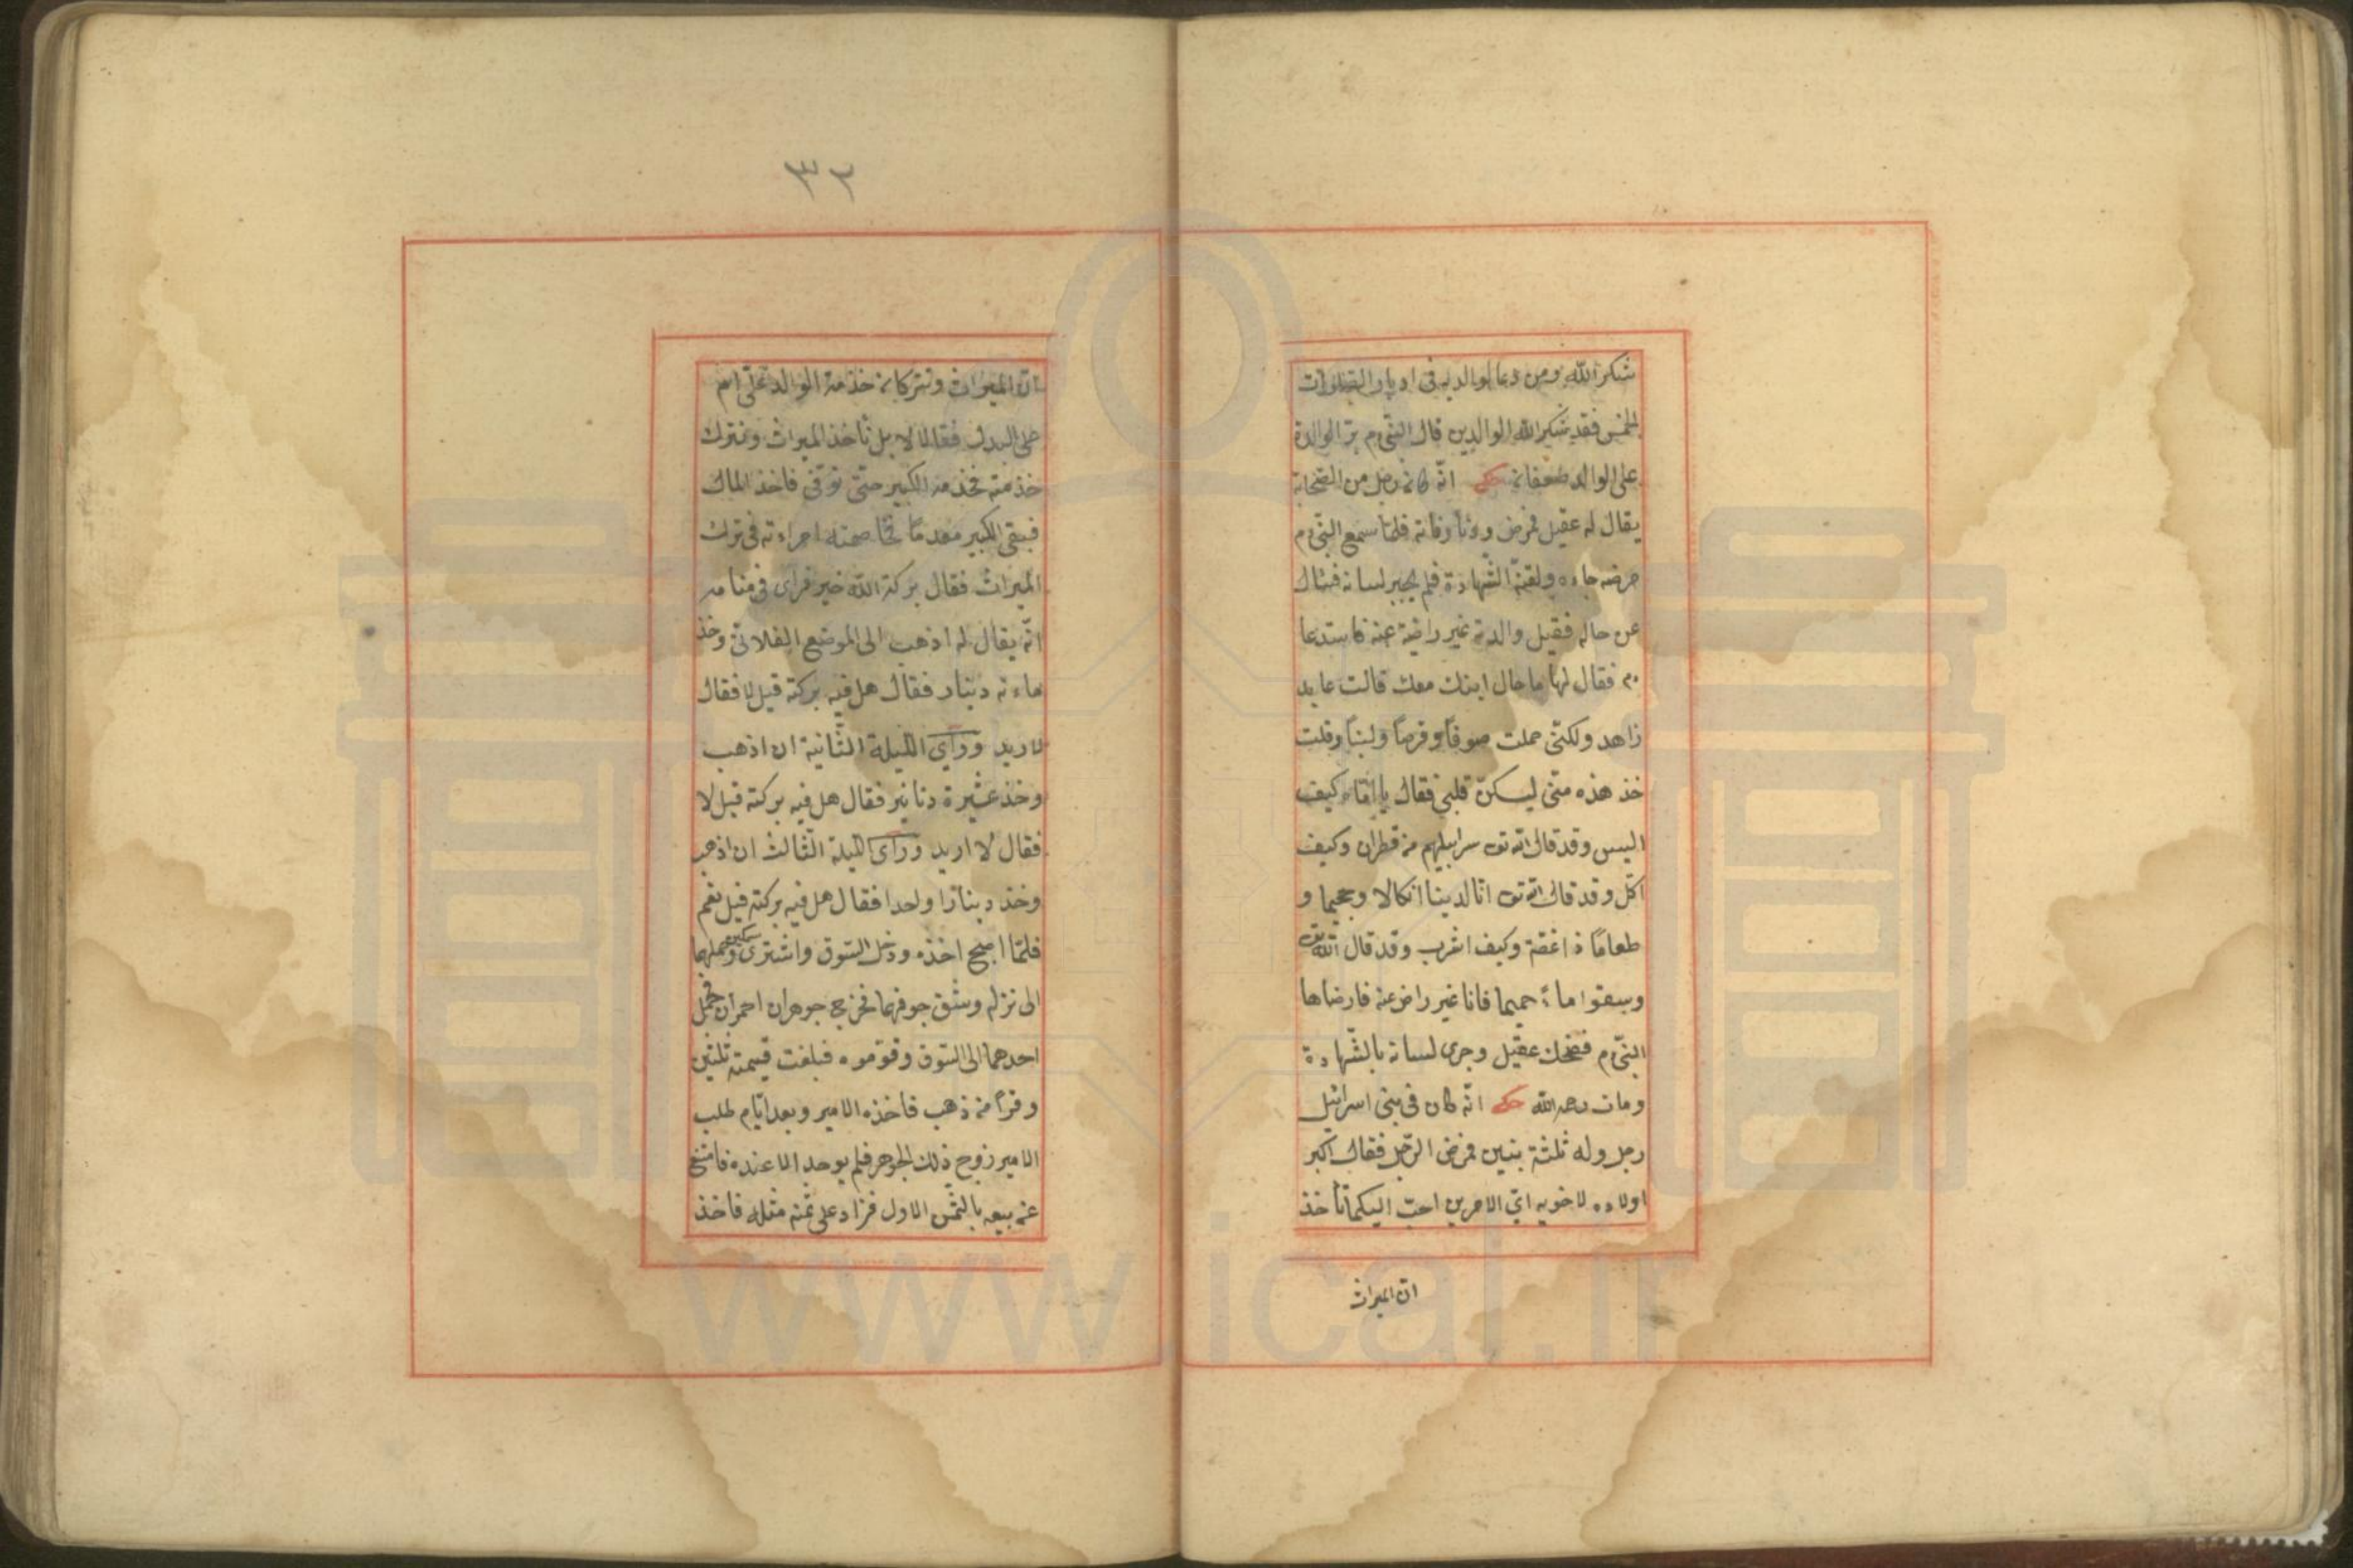 شكر الله ومن دعا لوالديه فى ادبار الصلوات
الخمس فقد شكر الله الوالدين قال النبى م بر الوالدة
على الوالد ضعفان حكى انّه كان رجل من الصحابة
يقال له عقيل فمرض ودنا وفاته فلما سمع النبى م
مرضه جاءه ولقنه الشهادة فلم يجير لسانه فسأل
عن حاله فقيل والدته غير راضية عنه فاستدعا
م فقال لها ما حال ابنك معك قالت عابد
زاهد ولكنّى حملت صوفاً وقرصاً ولبناً وقلت
خذ هذه منّى ليسكن قلبى فقال يا امّاه كيف
البس وقد قال الله تعـ سرابيلهم من قطران وكيف
اكل وقد قال الله تعـ انّ لدينا انكالا وجحيما و
طعامًا ذا غصّة وكيف اشرب وقد قال الله تعـ
وسقوا ماءً حميما فانا غير راض عنه فارضاها
النبى م فضحك عقيل وجرى لسانه بالشّهادة
ومات رحمه الله حكى انّه كان فى بنى اسرائيل
رجل وله ثلثة بنين فمرض الرّجل فقال اكبر
اولاده لاخويه اىّ الامرين احبّ اليكما تأخذ
ان الميراث
٣٢
ان الميراث وتتركان خذمة الوالد علىّ ام
على البدل فقالا لا بل نأخذ الميراث ونترك
خذمته فخذمه الكبير حتّى توفّى فاخذ المال
فبقى الكبير معدمًا فخاصمته امراءته فى ترك
الميراث فقال بركة الله خير فراى فى منامه
انّه يقال له اذهب الى الموضع الفلانىّ وخذ
ماءته دينار فقال هل فيه بركة قيل لا فقال
لا اريد ورأى الليلة الثّانية ان اذهب
وخذ عشرة دنانير فقال هل فيه بركة قيل لا
فقال لا اريد ورأى الليلة الثّالث ان اذهب
وخذ دينارًا واحدا فقال هل فيه بركة قيل نعم
فلمّا اصبح اخذه ودخل السّوق واشترى سمكين وحملهما
الى نزله وشق جوفهما فخرج جوهران احمران فحمل
احدهما الى السّوق وقوّموه فبلغت قيمته ثلثين
وقرًا من ذهب فاخذه الامير وبعد ايّام طلب
الامير زوج ذلك الجوهر فلم يوجد الا عنده فامتنع
عن بيعه بالثّمن الاول فزاد على ثمنه مثله فاخذ
www.ical.ir